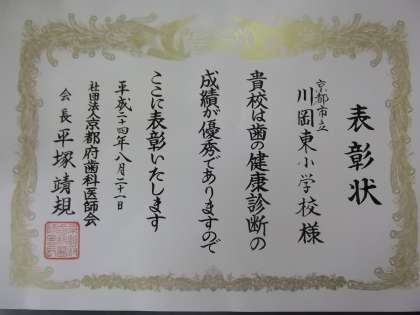 表彰状
京都市立
川岡東小学校様
貴校は歯の健康診断の
成績が優秀でありますので
ここに表彰いたします
平成二十四年八月二十一日
社団法人京都府歯科医師会
会長 平塚靖規